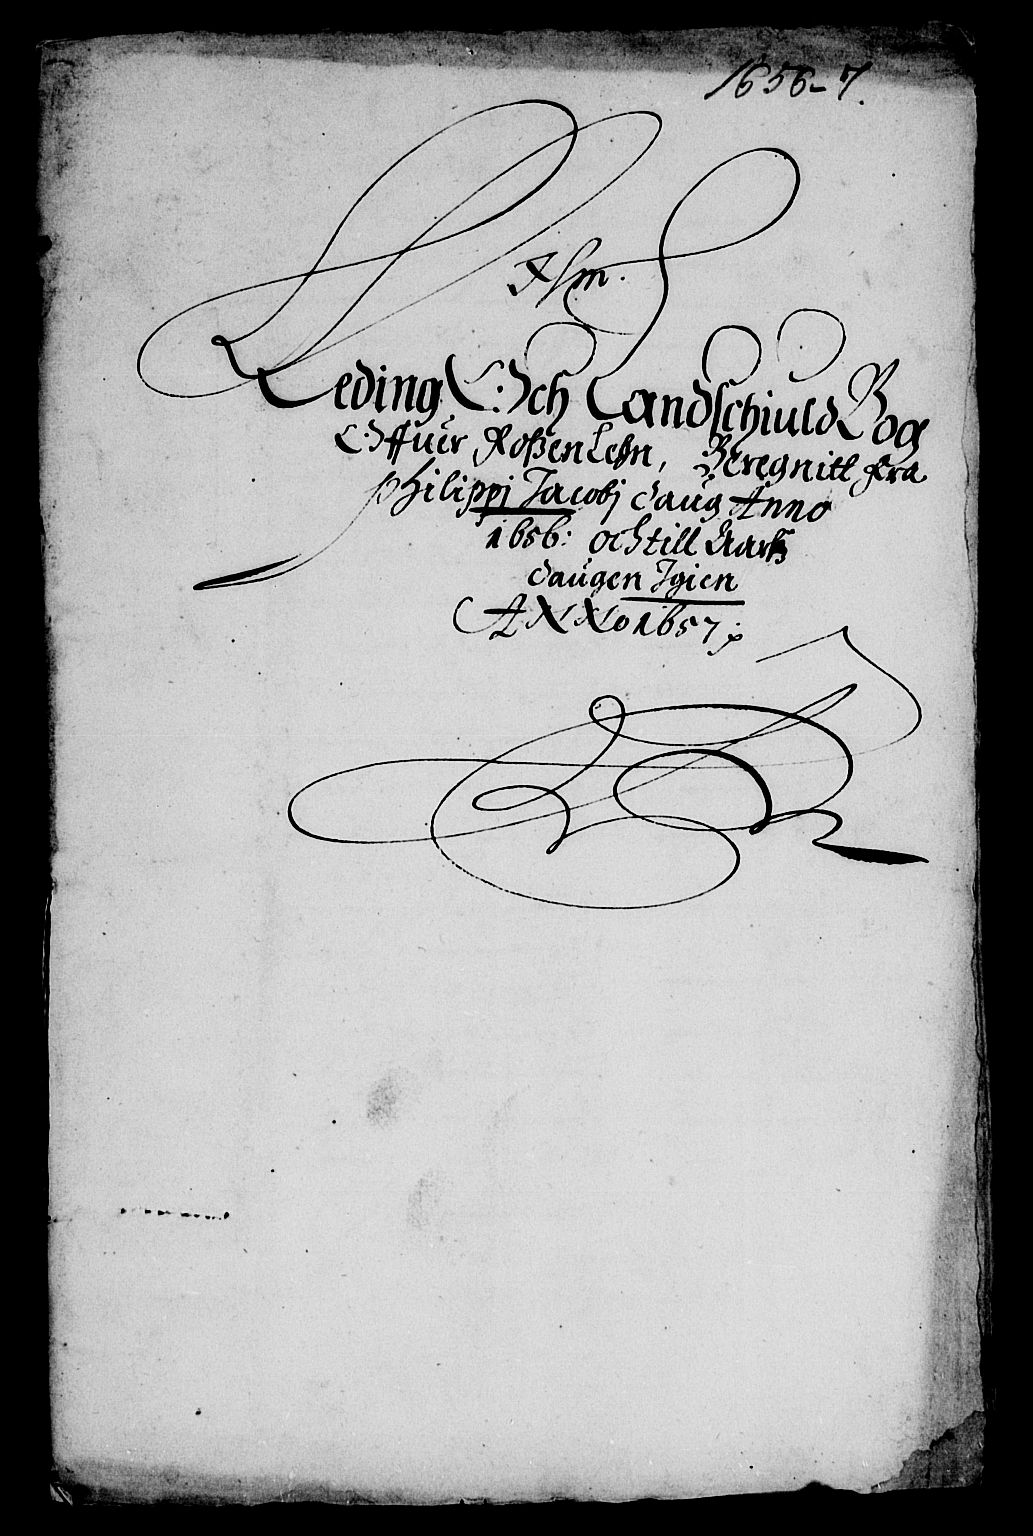 1656-7.
Leding: Och Landschiuld Bog
Offuer Roßen Lehn, Beregnitt fra
Philippi Jacobj daug Anno
1656: och till Aarß
daugen Igien
ANNo 1657